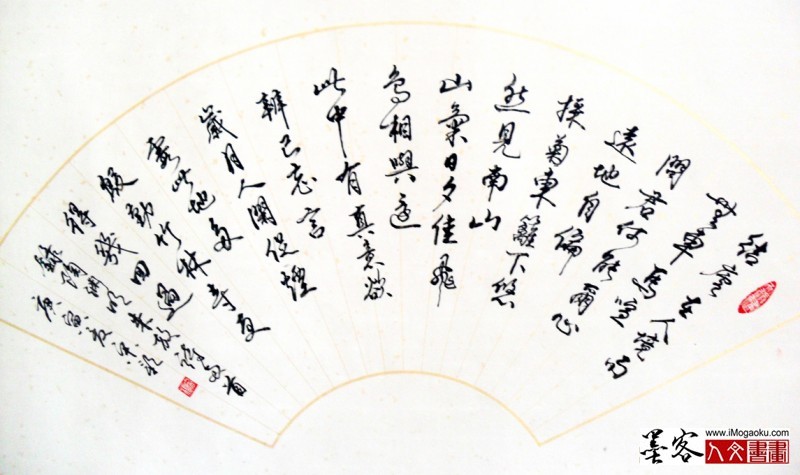 結廬在人境而
無車馬喧
問君何能爾心
遠地自偏
採菊東籬下悠
然見南山
山氣日夕佳飛
鳥相與還
此中有真意欲
辨已忘言
歲月人間促煙
霞此地多
殷勤竹林寺更
得幾回過
錄陶淵明朱放詩兩首
庚寅夏
墨客
www.iMogaoku.com
人文書畫